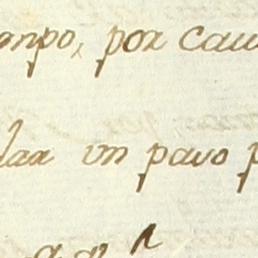 anpo, por cau
lar un pavo p